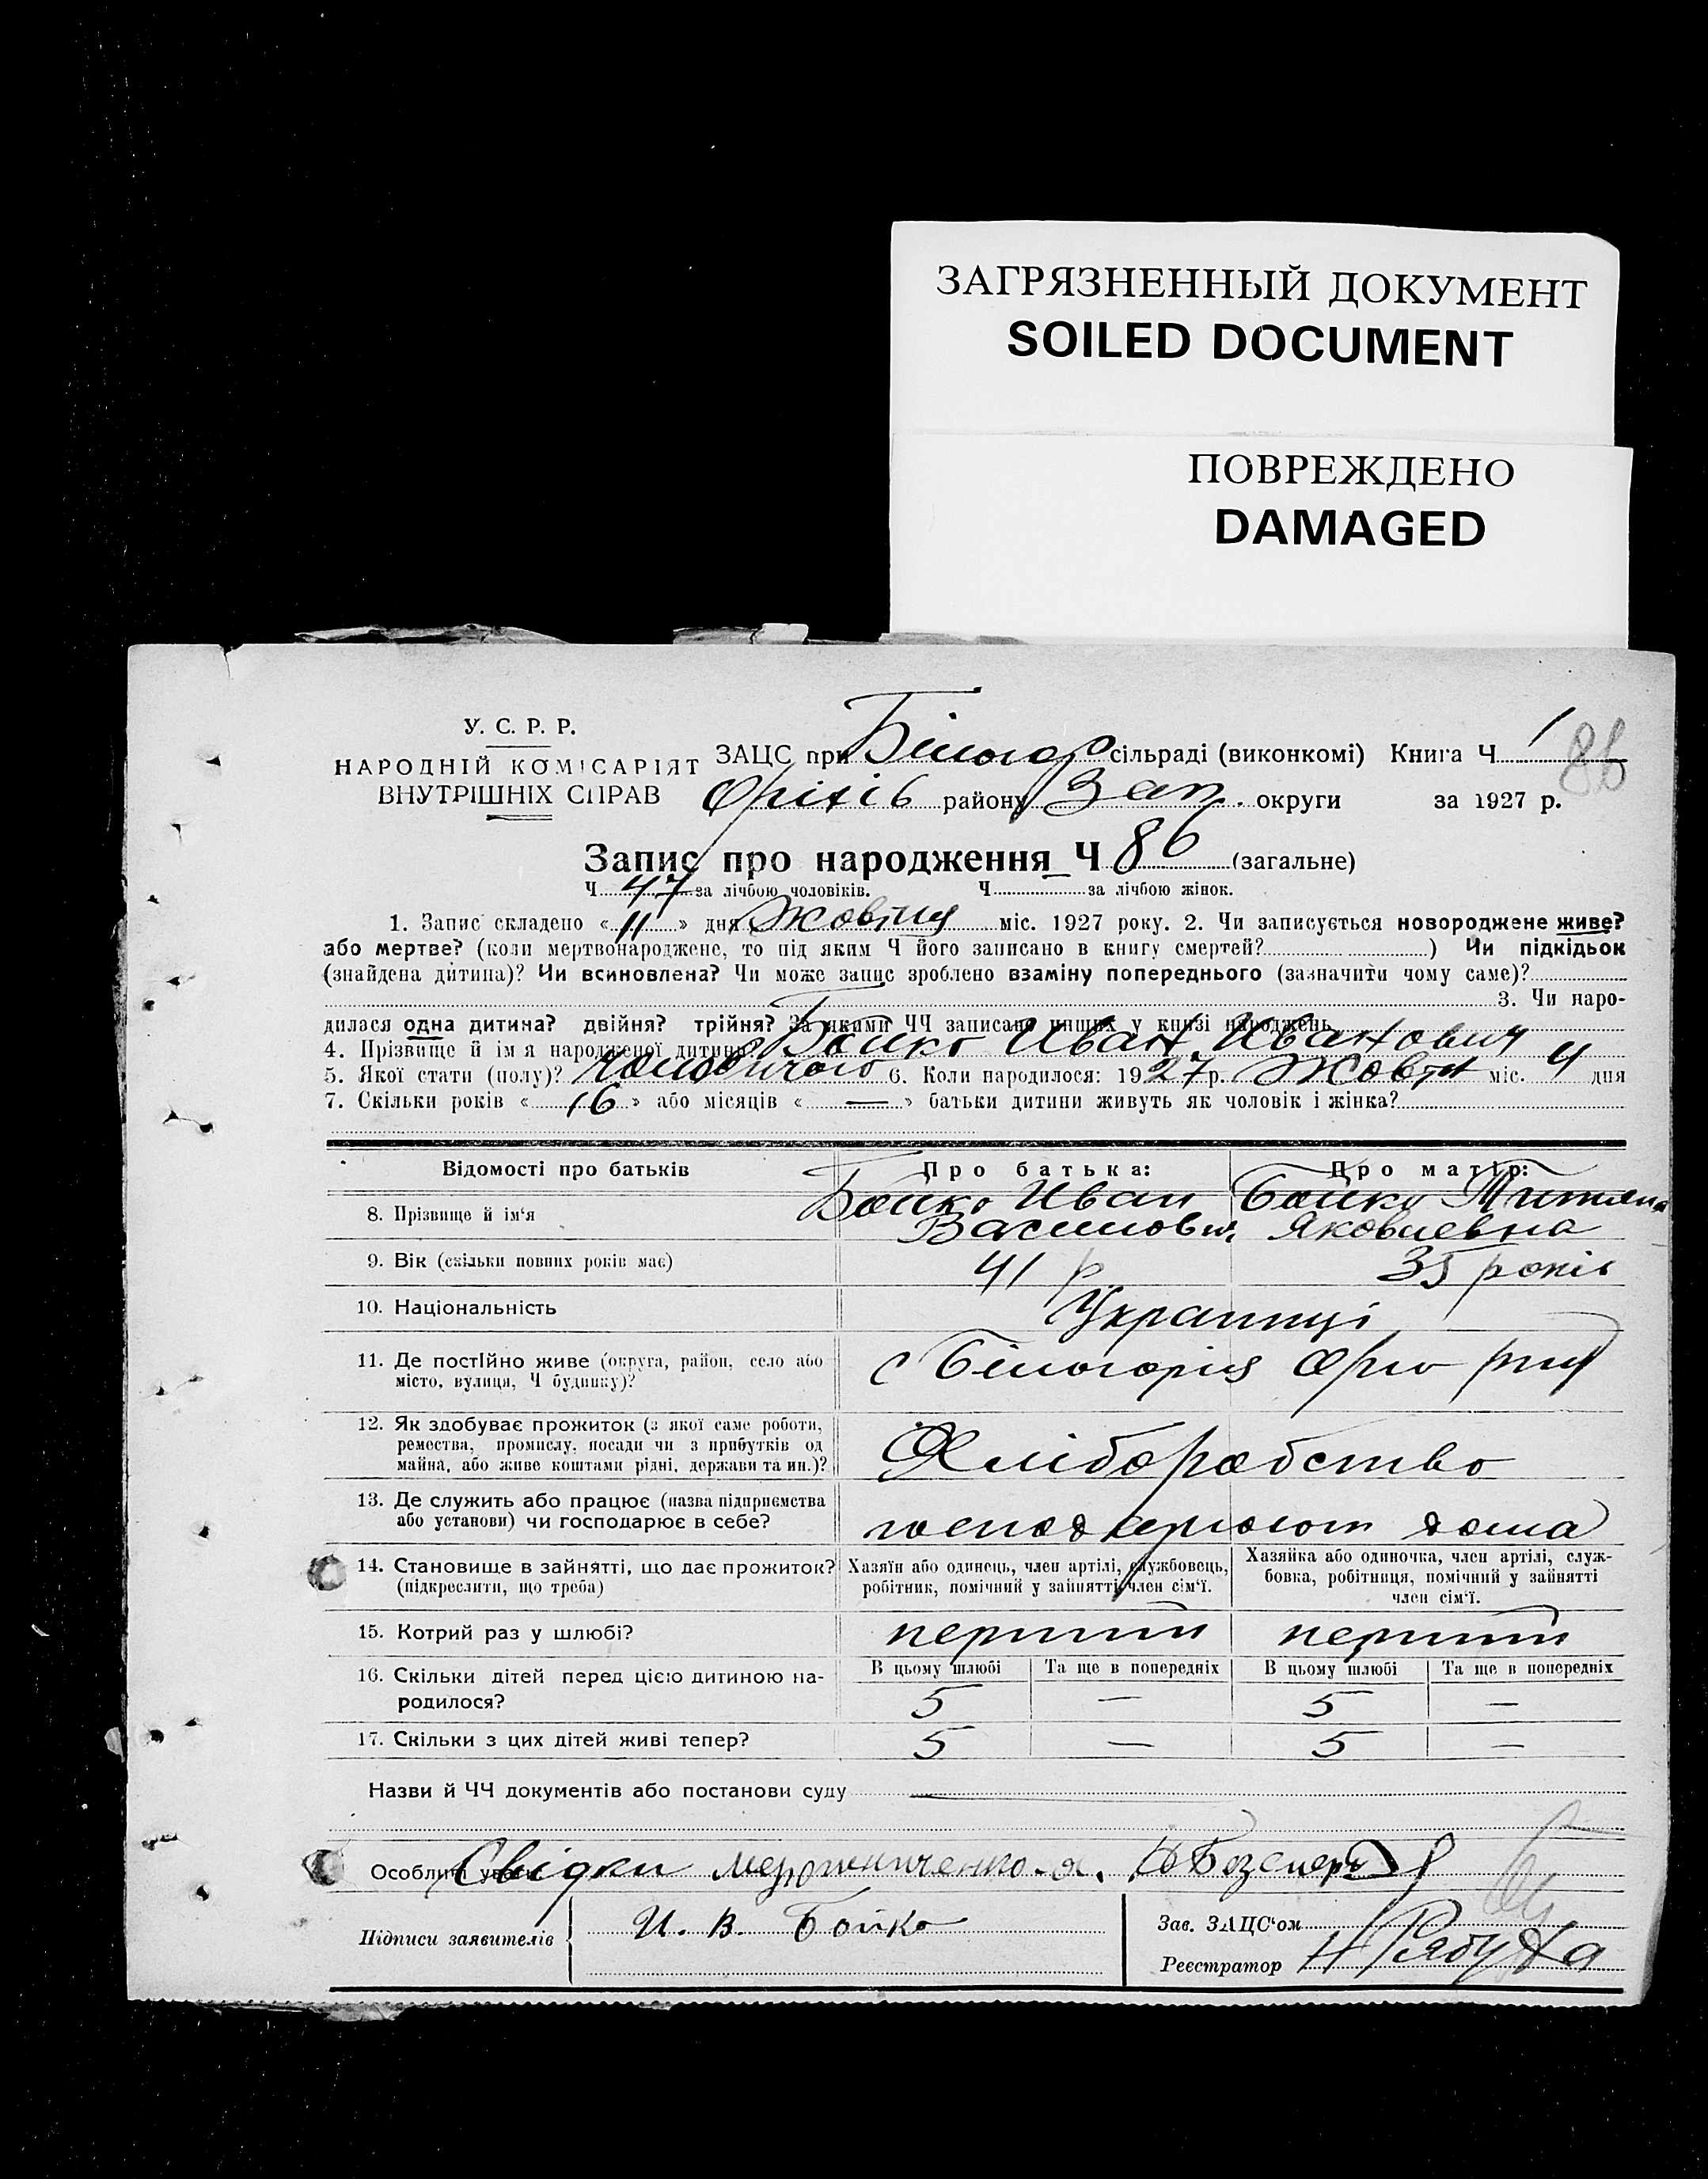 ЗАГРЯЗНЕННЫЙ ДОКУМЕНТ
SOILED DOCUMENT
ПОВРЕЖДЕНО
DAMAGED
У. С. Р. Р.
НАРОДНІЙ КОМІСАРІЯТ
ВНУТРІШНІХ СПРАВ
ЗАЦС при Білогор сільраді (виконкомі) Книга Ч 1
86
Оріхів району Зап. округи за 1927 р.
Запис про народження Ч 86 (загальне)
Ч 47 за лічбою чоловіків. Ч за лічбою жінок.
1. Запис складено « 11 » дня Жовтня міс. 1927 року. 2. Чи записується новороджене живе?
або мертве? (коли мертвонароджене, то під яким Ч його записано в книгу смертей? ) Чи підкідьок
(знайдена дитина)? Чи всиновлена? Чи може запис зроблено взаміну попереднього (зазначити чому саме)?
3. Чи наро-
дилася одна дитина? двійня? трійня? За якими ЧЧ записано инших у книзі народжень
4. Прізвище й ім'я народженої дитини? Бойко Иван Иванович
5. Якої стати (полу)? чоловічого 6. Коли народилося: 1927 р. Жовтн міс. 4 дня
7. Скільки років « 16 » або місяців « — » батьки дитини живуть як чоловік і жінка?
Відомості про батьків Про батька: Про матір:
8. Прізвище й ім'я Бойко Иван Бойко Титяна
Василович Яковлевна
9. Вік (скільки повних років має) 41 р 35 років
10. Національність Українці
11. Де постійно живе (округа, район, село або
місто, вулиця, Ч будинку)? с Білогорія
12. Як здобуває прожиток (з якої саме роботи,
ремества, промислу, посади чи з прибутків од
майна, або живе коштами рідні, держави та ин.)? Хліборобство
13. Де служить або працює (назва підприємства
або установи) чи господарює в себе? дома
14. Становище в зайнятті, що дає прожиток?
(підкреслити, що треба)
Хазяїн або одинець, член артілі, службовець,
робітник, помічний у зайнятті член сім'ї.
Хазяйка або одиночка, член артілі, служ-
бовка, робітниця, помічний у зайнятті
член сім'ї.
15. Котрий раз у шлюбі? перший перший
16. Скільки дітей перед цією дитиною на-
родилося?
В цьому шлюбі Та ще в попередніх В цьому шлюбі Та ще в попередніх
5 — 5 —
17. Скільки з цих дітей живі тепер? 5 — 5 —
Назви й ЧЧ документів або постанови суду
Особливі уваги Свідки
Підписи заявителів И. В. Бойко
Зав. ЗАЦС'ом
Реєстратор Н Рябуха